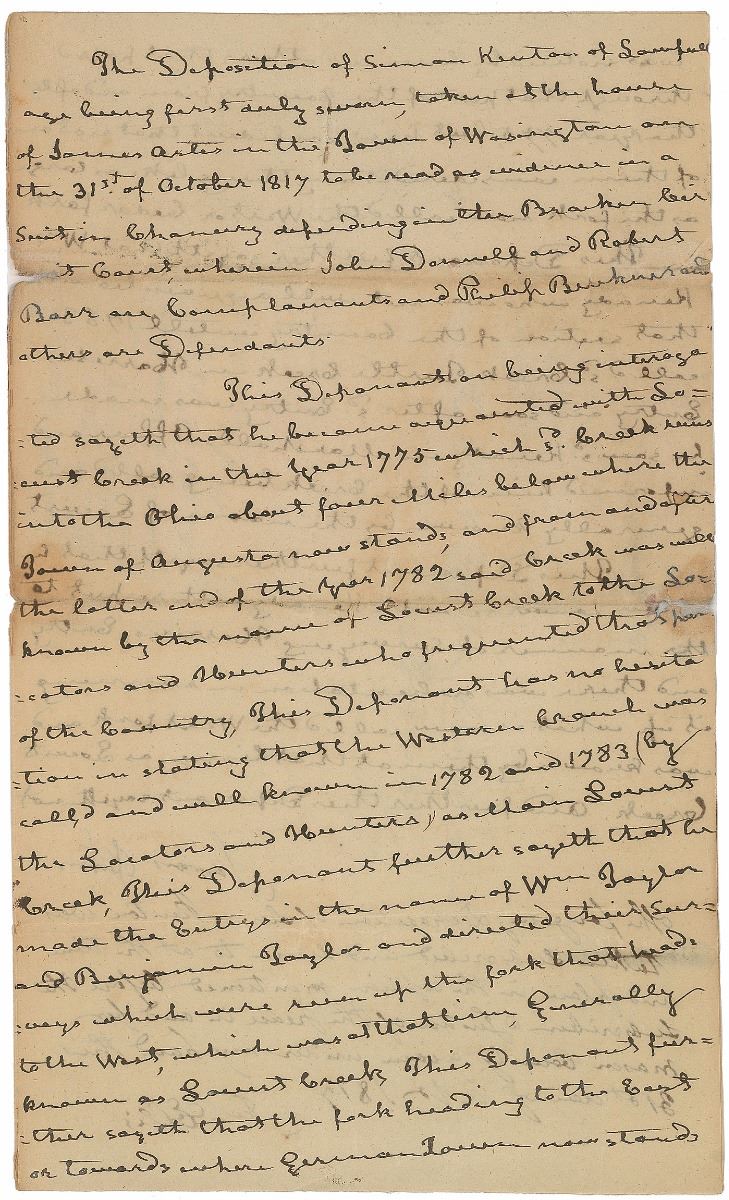 The Deposition of Simon Kenton of Lawfull
age being first duly sworn, taken at the house
of James Artes in the Town of Wasington on
the 31st of October 1817 to be read as evidence in a
Suit in Chancery depending in the Bracken Cir
it Court, wherein John Donnell and Robert
Barr are Complainants and Philip and
others are Defendants
This Deponant on being interoga
:ted sayeth that he became aquainted with Lo=
:cust Creek in the Year 1775 which sd. Creek runs
into the Ohio about four Miles below where the
Town of Augusta now stands, and from and after
the latter end of the Year 1782 said Creek was well
known by the name of Locust Creek to the Lo=
:cators and Hunters who frequented that par
of the Country, This Deponant has no hesita
:tion in stating that the Western branch was
call,d and well known in 1782 and 1783 (by
the Locators and Hunters) as Main Locust
Creek, This Deponant further sayeth that he
made the Entrys in the name of Wm Taylor
and Benjamin Taylor and directed their Sur=
:veys which were run up the fork that heads
to the West, which was at that time, Generally
known as Locust Creek, This Deponant fur=
:ther sayeth that the fork heading to the East
or towards where GermanTown now stands